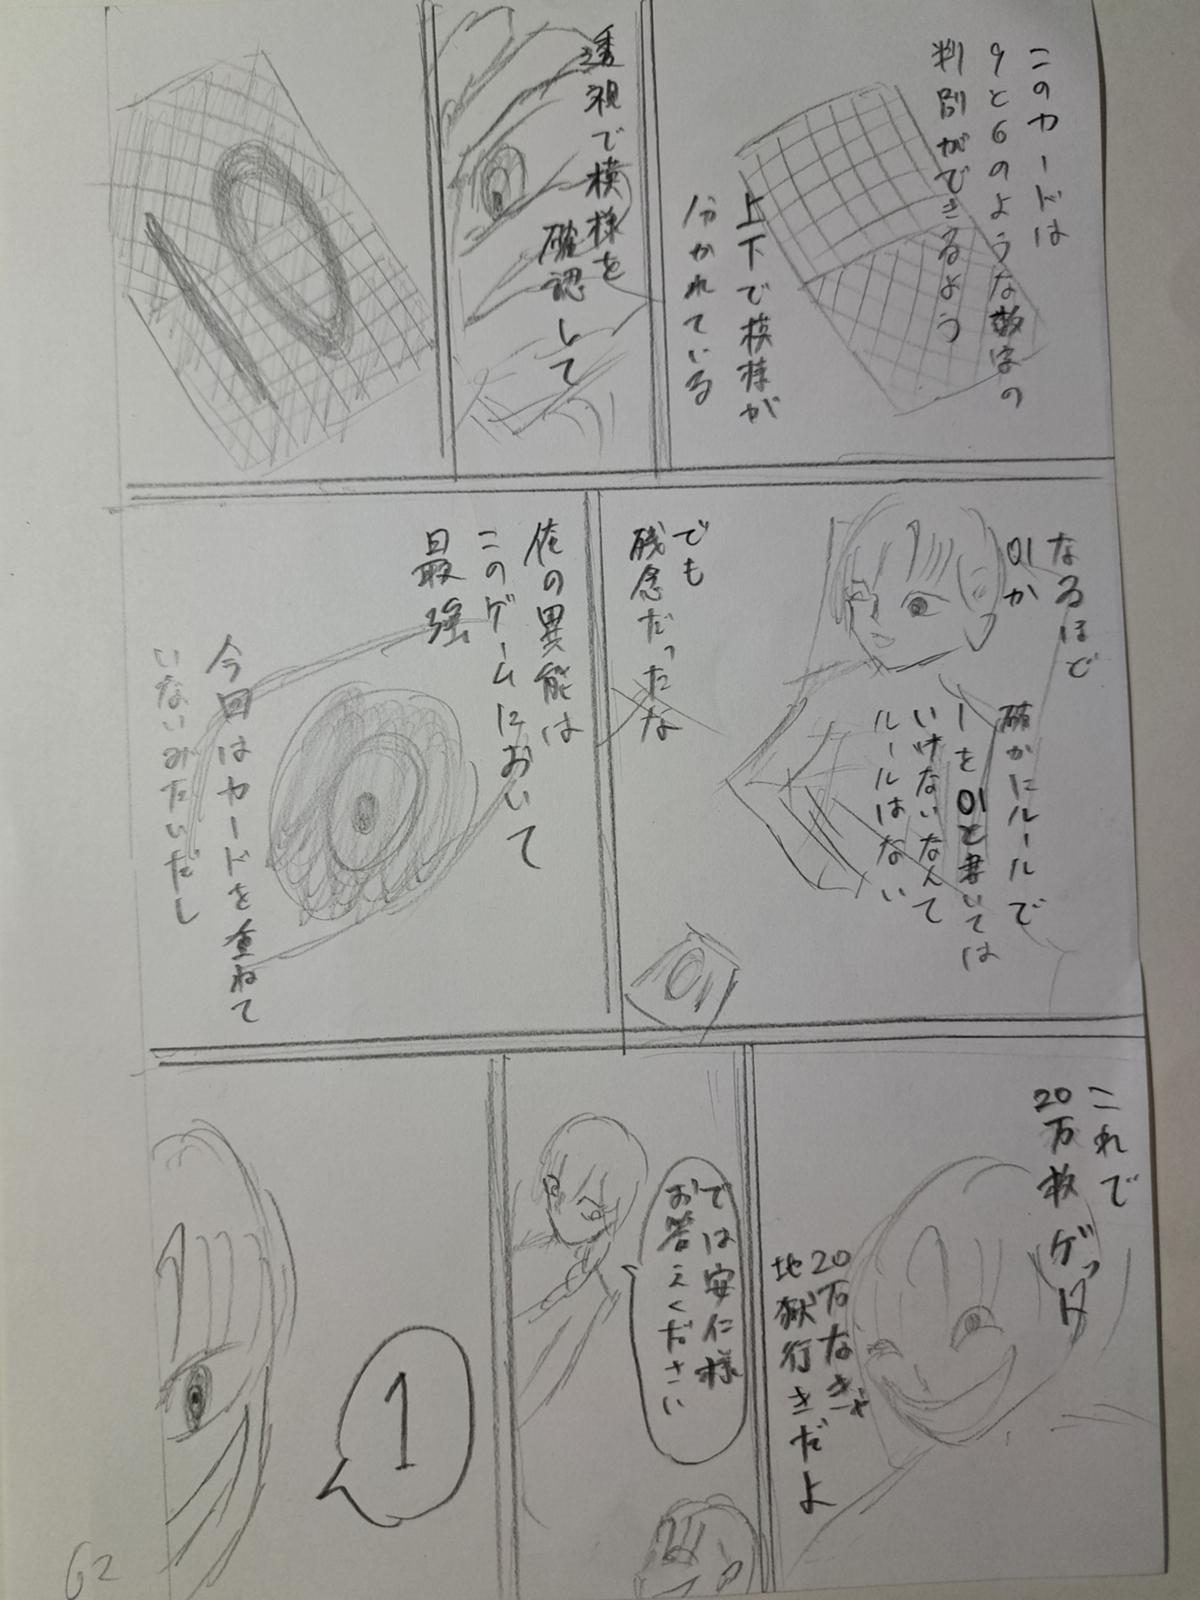 このカードは
9と6のような数字の
判別ができるよう
上下で模様が
分かれている
透視で模様を
確認して
10
なるほど
01か
確かにルールで
1を01と書いては
いけないなんて
ルールはない
でも
残念だったな
01
俺の異能は
このゲームにおいて
最強
今回はカードを重ねて
いないみたいだし
これで
20万枚ゲット
20万なきゃ
地獄行きだよ
では安仁様
お答えください
1
62